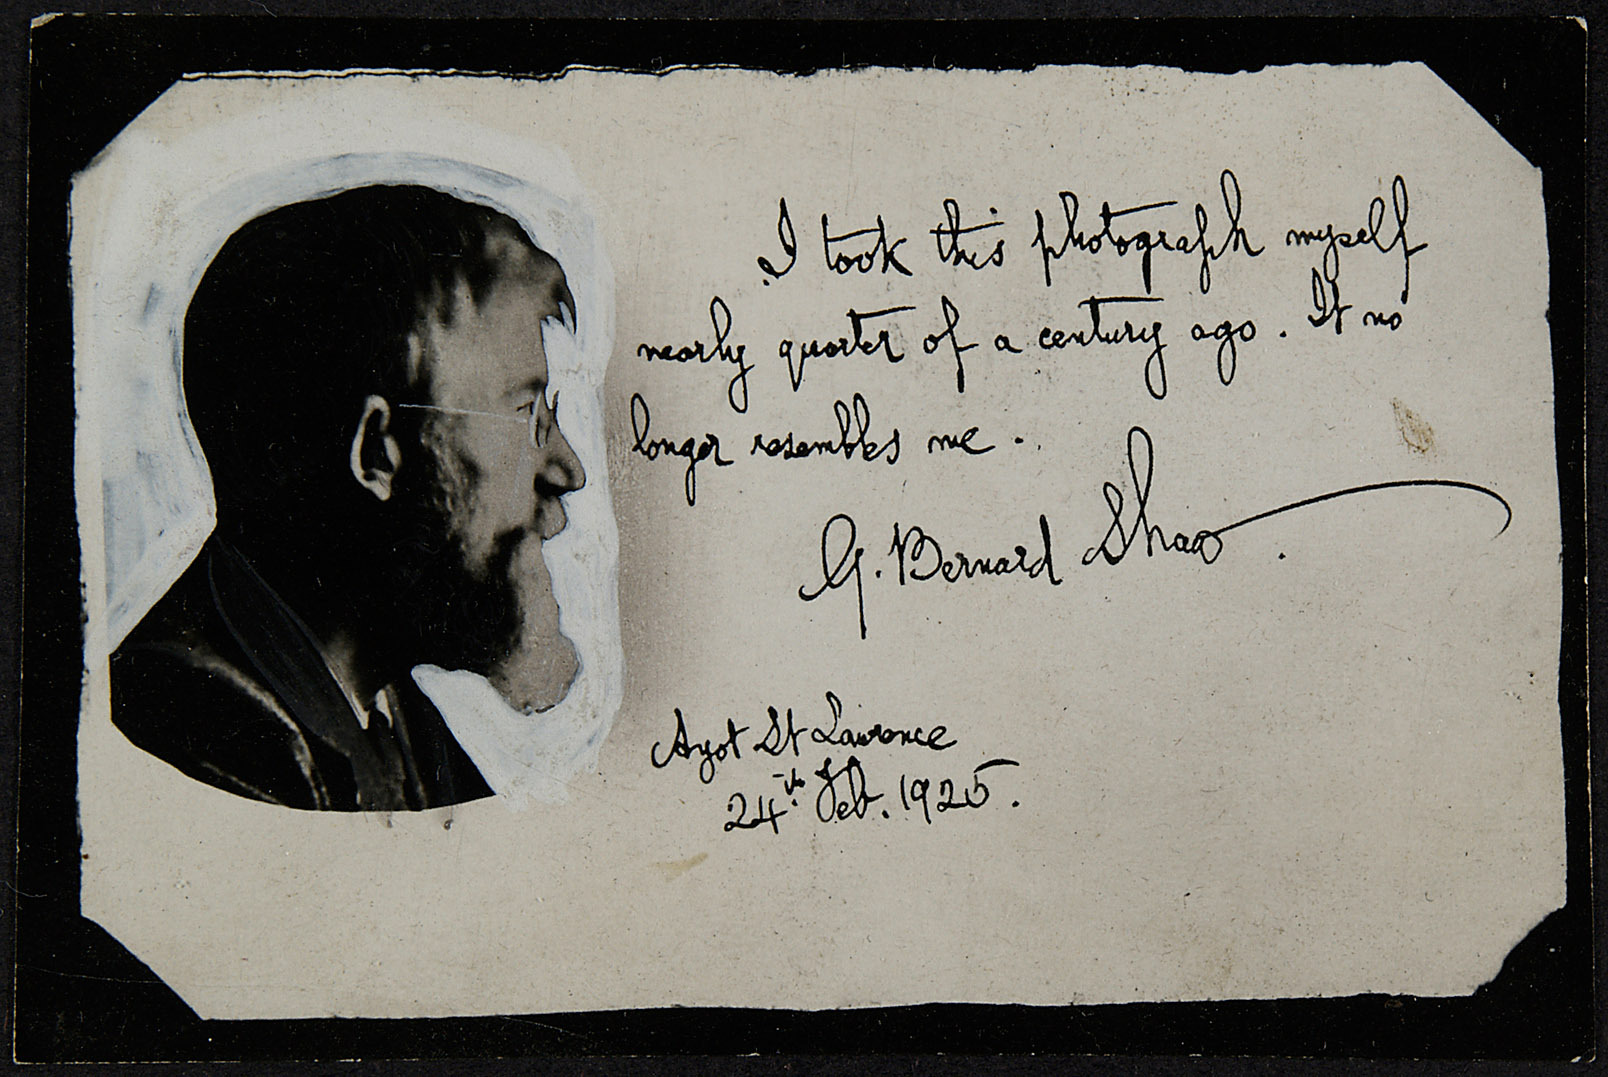 I took this photograph myself
nearly quarter of a century ago. It no
longer resembles me.
G. Bernard Shaw.
Ayot St Lawrence
24th Feb. 1925.